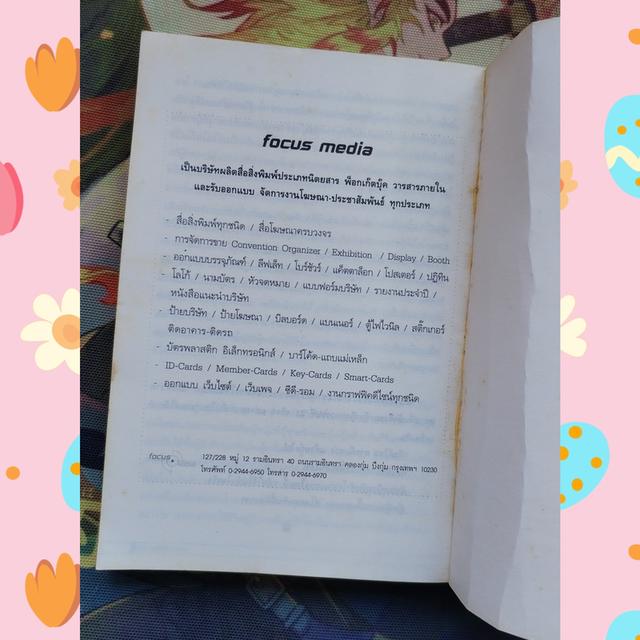 focus media
เป็นบริษัทผลิตสื่อสิ่งพิมพ์ประเภทนิตยสาร พ็อกเก็ตบุ๊ค วารสารภายใน
และรับออกแบบ จัดการงานโฆษณา-ประชาสัมพันธ์ ทุกประเภท
- สื่อสิ่งพิมพ์ทุกชนิด / สื่อโฆษณาครบวงจร
- การจัดการขาย Convention Organizer / Exhibition / Display / Booth
- ออกแบบบรรจุภัณฑ์ / ลีฟเล็ท / โบร์ชัวร์ / แค็ตตาล็อก / โปสเตอร์ / ปฏิทิน
- โลโก้ / นามบัตร / หัวจดหมาย / แบบฟอร์มบริษัท / รายงานประจำปี /
หนังสือแนะนำบริษัท
- ป้ายบริษัท / ป้ายโฆษณา / บิลบอร์ด / แบนเนอร์ / ตู้ไฟไวนิล / สติ๊กเกอร์
ติดอาคาร-ติดรถ
- บัตรพลาสติก อิเล็กทรอนิกส์ / บาร์โค้ด-แถบแม่เหล็ก
- ID-Cards / Member-Cards / Key-Cards / Smart-Cards
- ออกแบบ เว็บไซต์ / เว็บเพจ / ซีดี-รอม / งานกราฟฟิคดีไซน์ทุกชนิด
focus
127/228 หมู่ 12 รามอินทรา 40 ถนนรามอินทรา คลองกุ่ม บึงกุ่ม กรุงเทพฯ 10230
โทรศัพท์ 0-2944-6950 โทรสาร 0-2944-6970